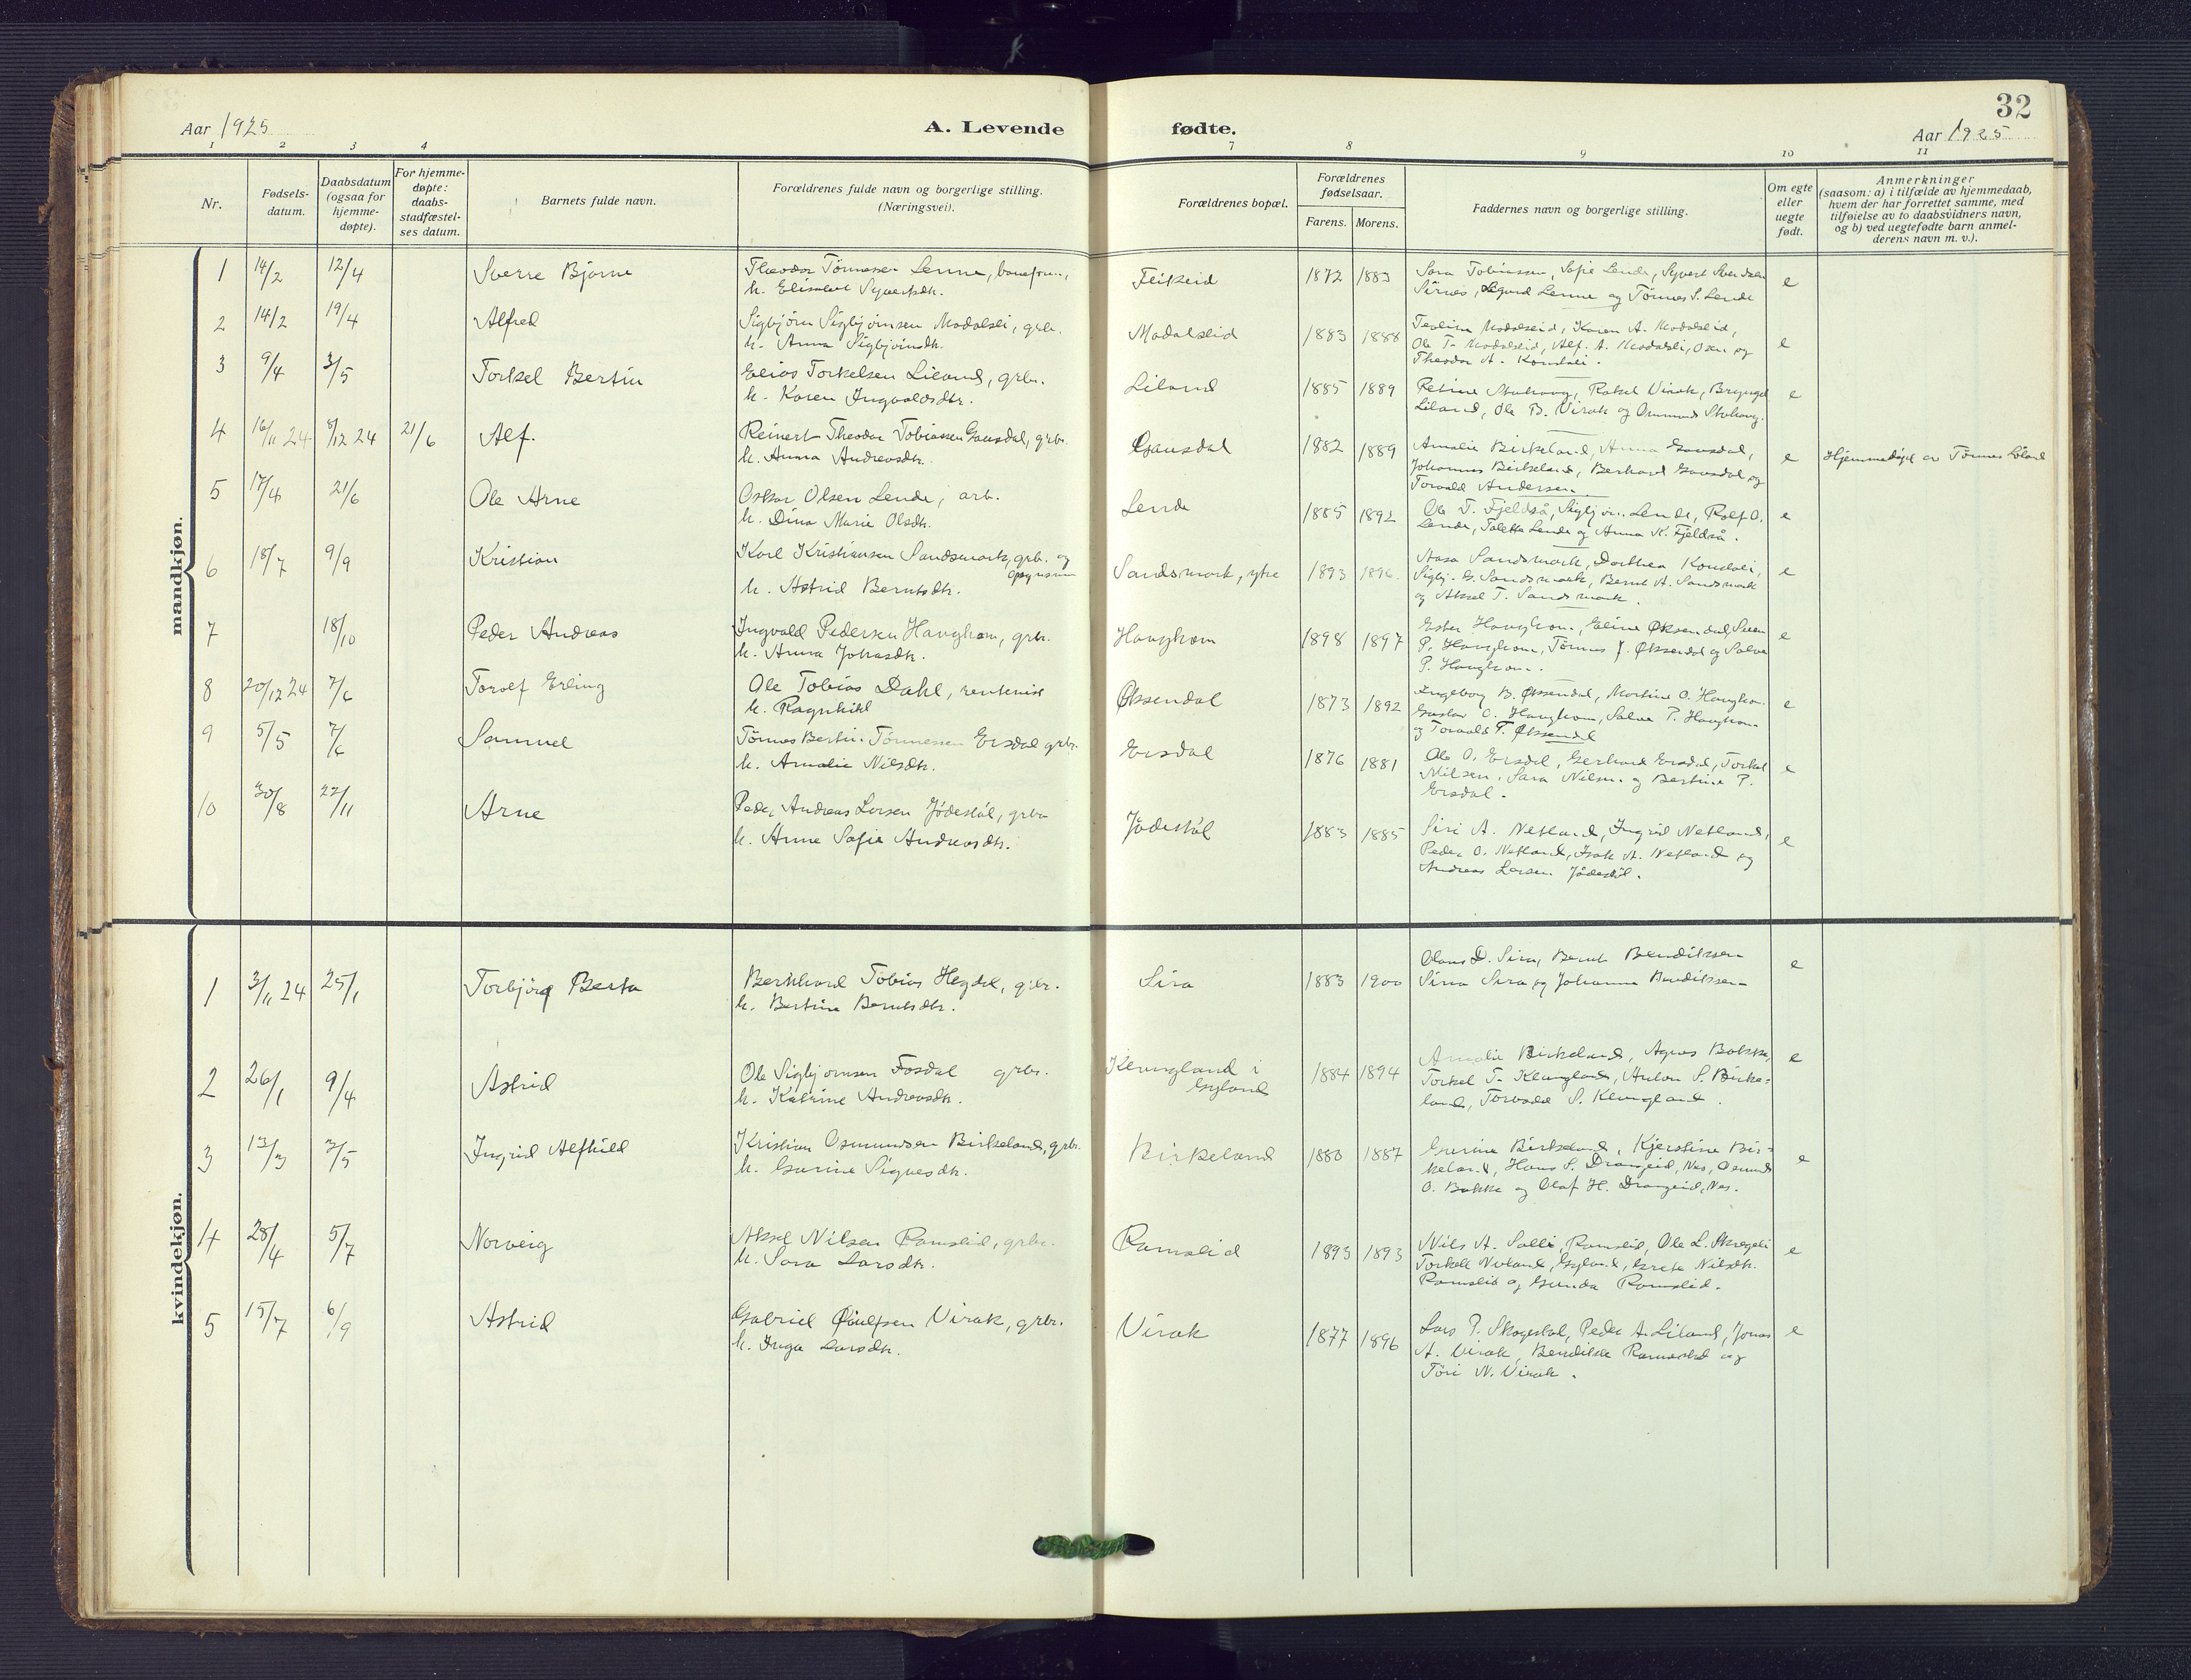 32
Aar 1925
A. Levende fødte.
Aar 1925
1 2 3 4 7 8 9 10 11
Nr.
Fødsels-
datum.
Daabsdatum
(ogsaa for
hjemme-
døpte).
For hjemme-
døpte:
daabs-
stadfæstel-
ses datum.
Barnets fulde navn.
Forældrenes fulde navn og borgerlige stilling.
(Næringsvei).
Forældrenes bopæl.
Forældrenes
fødselsaar.
Farens. Morens.
Faddernes navn og borgerlige stilling.
Om egte
eller
uegte
født.
Anmerkninger
(saasom: a) i tilfælde av hjemmedaab,
hvem der har forrettet samme, med
tilføielse av to daabsvidners navn,
og b) ved uegtefødte barn anmel-
derens navn m. v.).
mandkjøn.
1 14/2 12/4 Sverre Bjarne
Theodor Tönnesen Lenne,
h. Elisabet Syvertsdtr.
Feikeid 1872 1883
Sara Tobiassen, Sofie Lende, Syvert Svendsen
Sirnes, Sigurd Lenne og Tönnes S. Lende
e
2 14/2 19/4 Alfred
Sigbjörn Sigbjörnsen Modalsli, grbr.
h. Anna Sigbjörnsdtr.
Modalseid 1883 1888
Teoline Modalseid, Karen A. Modalseid,
Ole T. Modalseid, Alf. A. Modalsli, Osen og
Theodor A. Kondali.
e
3 9/4 3/5 Torkel Bertin
Elias Torkelsen Liland, grbr.
h. Karen Ingvaldsdtr.
Liland 1885 1889
Petine Stuhaug, Rakel Virak, Bryngel
Liland, Ole B. Virak og Ommund Stuhaug.
e
4 16/11 24 8/12 24 21/6 Alf.
Reinert Theodor Tobiassen Gausdal, grbr.
h. Anna Andreasdtr.
Gausdal 1882 1889
Amalie Birkeland, Anna Gausdal,
Johannes Birkeland, Berhard Gausdal og
Torvald Andersen.
e
Hjemmedöpt av Tönnes Liland
5 17/4 21/6 Ole Arne
Oskar Olsen Lende, arb.
h. Dina Marie Olsdtr.
Lende 1885 1892
Ole T. Fjeldså, Sigbjörn Lende, Rolf O.
Lende, Taletta Lende og Anna K. Fjeldså.
e
6 18/7 9/9 Kristian
Karl Kristiansen Sandsmark, grbr. og
h. Astrid Berntsdtr.
Sandsmark, ytre 1893 1896.
Aasa Sandsmark, Dorthea Kondali,
Sigbj. G. Sandsmark, Bernt A. Sandsmark
og Aksel T. Sandsmark.
e
7 18/10 Peder Andreas
Ingvald Pedersen Haughom, grbr.
h. Anna Johasdtr.
Haughom 1898 1897
Ester Haughom, Eline Øksendal, Sven
P. Haughom, Tönnes J. Øksendal og Salve
P. Haughom.
e
8 20/12 24 7/6 Torolf Erling
Ole Tobias Dahl, rentenist
h. Ragnhild
Øksendal 1873 1892
Ingeborg B. Øksendal, Martine O. Haughom
Gustav O. Haughom, Salve P. Haughom
og Torvald T. Øksendal
e
9 5/5 7/6 Samuel
Tönnes Bertin Tönnessen Ersdal grbr.
h. Amalie Nilsdtr.
Ersdal 1876 1881
Ole O. Ersdal, Gerhard Ersdal, Torkel
Nilsen, Sara Nilsen og Bertine P.
Ersdal.
e
10 30/8 22/11 Arne
Peder Andreas Larsen Jödestöl, grbr
h. Anne Sofie Andreasdtr.
Jödestöl 1883 1885
Siri A. Netland, Ingrid Netland,
Peder O. Netland, Isak A. Netland og
Andreas Larsen Jödestöl.
e
kvindekjøn.
1 3/11 24 25/1 Torbjörg Berta
Bernhard Tobias Hegdal, grbr.
h. Bertine Berntsdtr.
Sira 1883 1900
Olaus D. Sira, Bernt Bendiksen
Sina Sira og Johanna Bendiksen
e
2 26/1 9/4 Astrid
Ole Sigbjörnsen Fosdal grbr.
h. Katrine Andreasdtr.
Klungland i
Gyland
1884 1894
Amalie Birkeland, Agnes Bakke,
Torkel T. Klungland, Anton S. Birke-
land, Torvald S. Klungland.
e
3 13/3 3/5 Ingrid Alfhild
Kristian Osmundsen Birkeland, grbr.
h. Gurine Signesdtr.
Birkeland 1880 1887
Gurine Birkeland, Kjerstine Bir-
keland, Hans S. Drangeid, Nes, Osmund
O. Bakke og Olaf H. Drangeid, Nes.
e
4 28/4 5/7 Norveig
Aksel Nilsen Ramslid, grbr.
h. Sara Larsdtr.
Ramslid 1893 1893
Nils A. Salli, Ramslid, Ole L. Skregeli
Torkell Nuland, Gyland, Grete Nilsdtr.
Ramslid og Gunda Ramslid.
e
5 15/7 6/9 Astrid
Gabriel Paulsen Virak, grbr.
h. Inga Larsdtr.
Virak 1877 1896
Lars P. Skogestad, Peder A. Liland, Jonas
A. Virak, Bendikke og
Töri N. Virak.
e